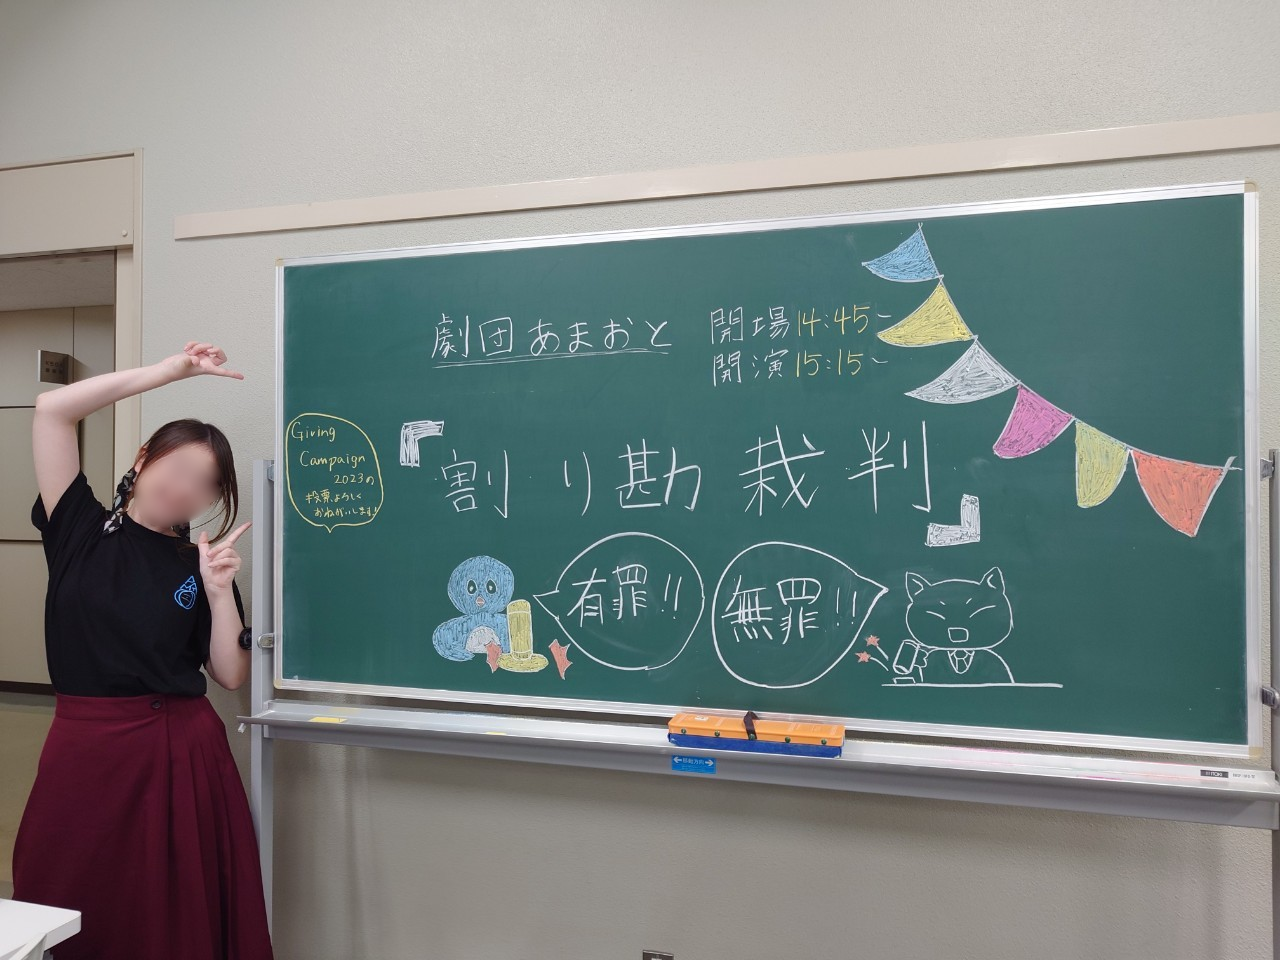 劇団あまおと
開場14:45~
開演15:15~
Giving
Campaign
2023の
投票よろしく
おねがいします!
『割り勘裁判』
有罪!!
無罪!!
ITOKI